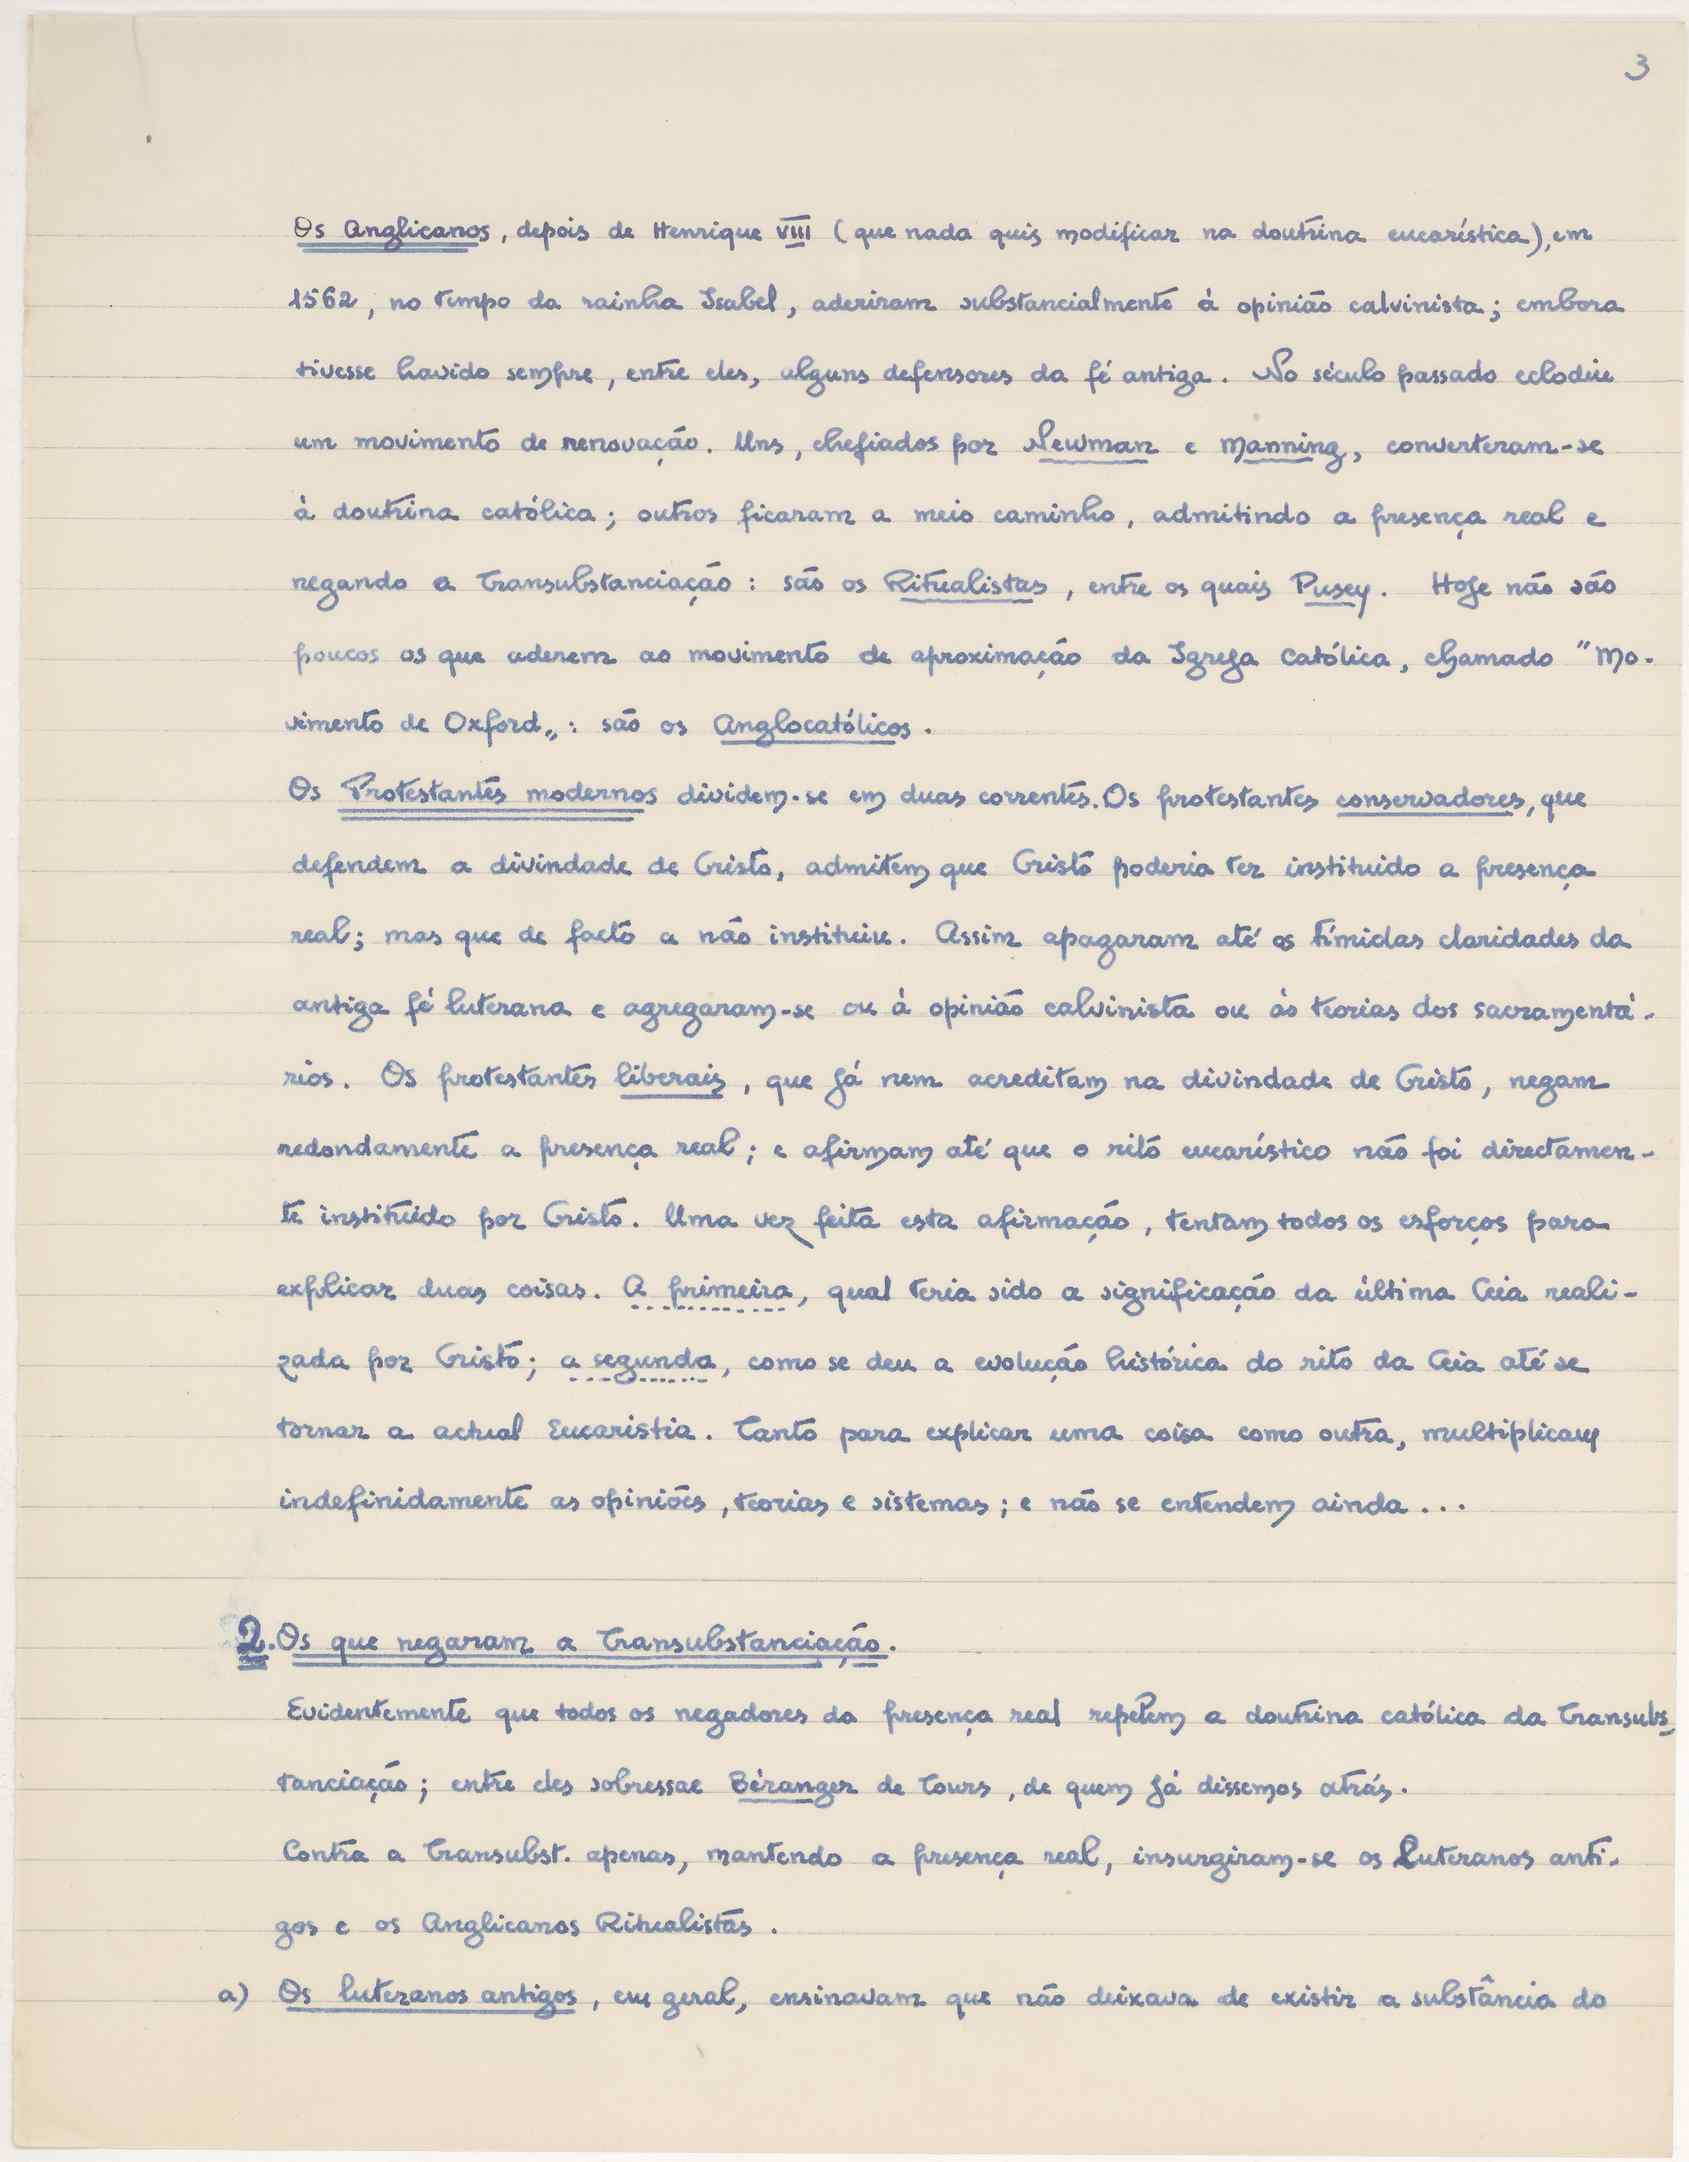 3
Os Anglicanos, depois de Henrique VIII (que nada quis modificar na doutrina eucarística), em
1562, no tempo da rainha Isabel, aderiram substancialmente à opinião calvinista; embora
tivesse havido sempre, entre eles, alguns defensores da fé antiga. No século passado eclodiu
um movimento de renovação. Uns, chefiados por Newman e Manning, converteram-se
à doutrina católica; outros ficaram a meio caminho, admitindo a presença real e
negando a Transubstanciação: são os Ritualistas, entre os quais Pusey. Hoje não são
poucos os que aderem ao movimento de aproximação da Igreja Católica, chamado "Mo-
vimento de Oxford„: são os Anglocatólicos.
Os Protestantes modernos dividem-se em duas correntes. Os protestantes conservadores, que
defendem a divindade de Cristo, admitem que Cristo poderia ter instituido a presença
real; mas que de facto a não instituiu. Assim apagaram até as tímidas claridades da
antiga fé luterana e agregaram-se ou à opinião calvinista ou às teorias dos sacramentá-
rios. Os protestantes liberais, que já nem acreditam na divindade de Cristo, negam
redondamente a presença real; e afirmam até que o rito eucarístico não foi directamen-
te instituído por Cristo. Uma vez feita esta afirmação, tentam todos os esforços para
explicar duas coisas. A primeira, qual teria sido a significação da última Ceia reali-
zada por Cristo; a segunda, como se deu a evolução histórica do rito da Ceia até se
tornar a actual Eucaristia. Tanto para explicar uma coisa como outra, multiplicam
indefinidamente as opiniões, teorias e sistemas; e não se entendem ainda...
2. Os que negaram a Transubstanciação.
Evidentemente que todos os negadores da presença real repelem a doutrina católica da Transubs
tanciação; entre eles sobressae Béranger de Tours, de quem já dissemos atrás.
Contra a Transubst. apenas, mantendo a presença real, insurgiram-se os Luteranos anti-
gos e os Anglicanos Ritualistas.
a) Os luteranos antigos, em geral, ensinavam que não deixava de existir a substância do